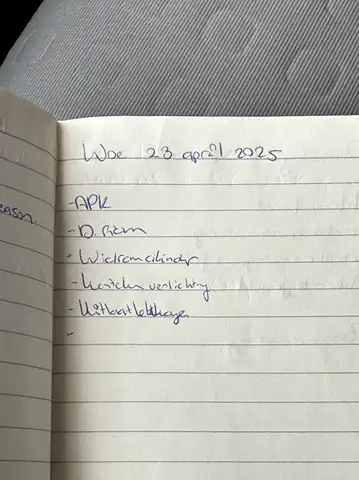 eason
Woe 23 april 2025
- APK
- D. Riem
- Wielremcilinder
- kenteken verlichting
- Uitlaat lekkage
-